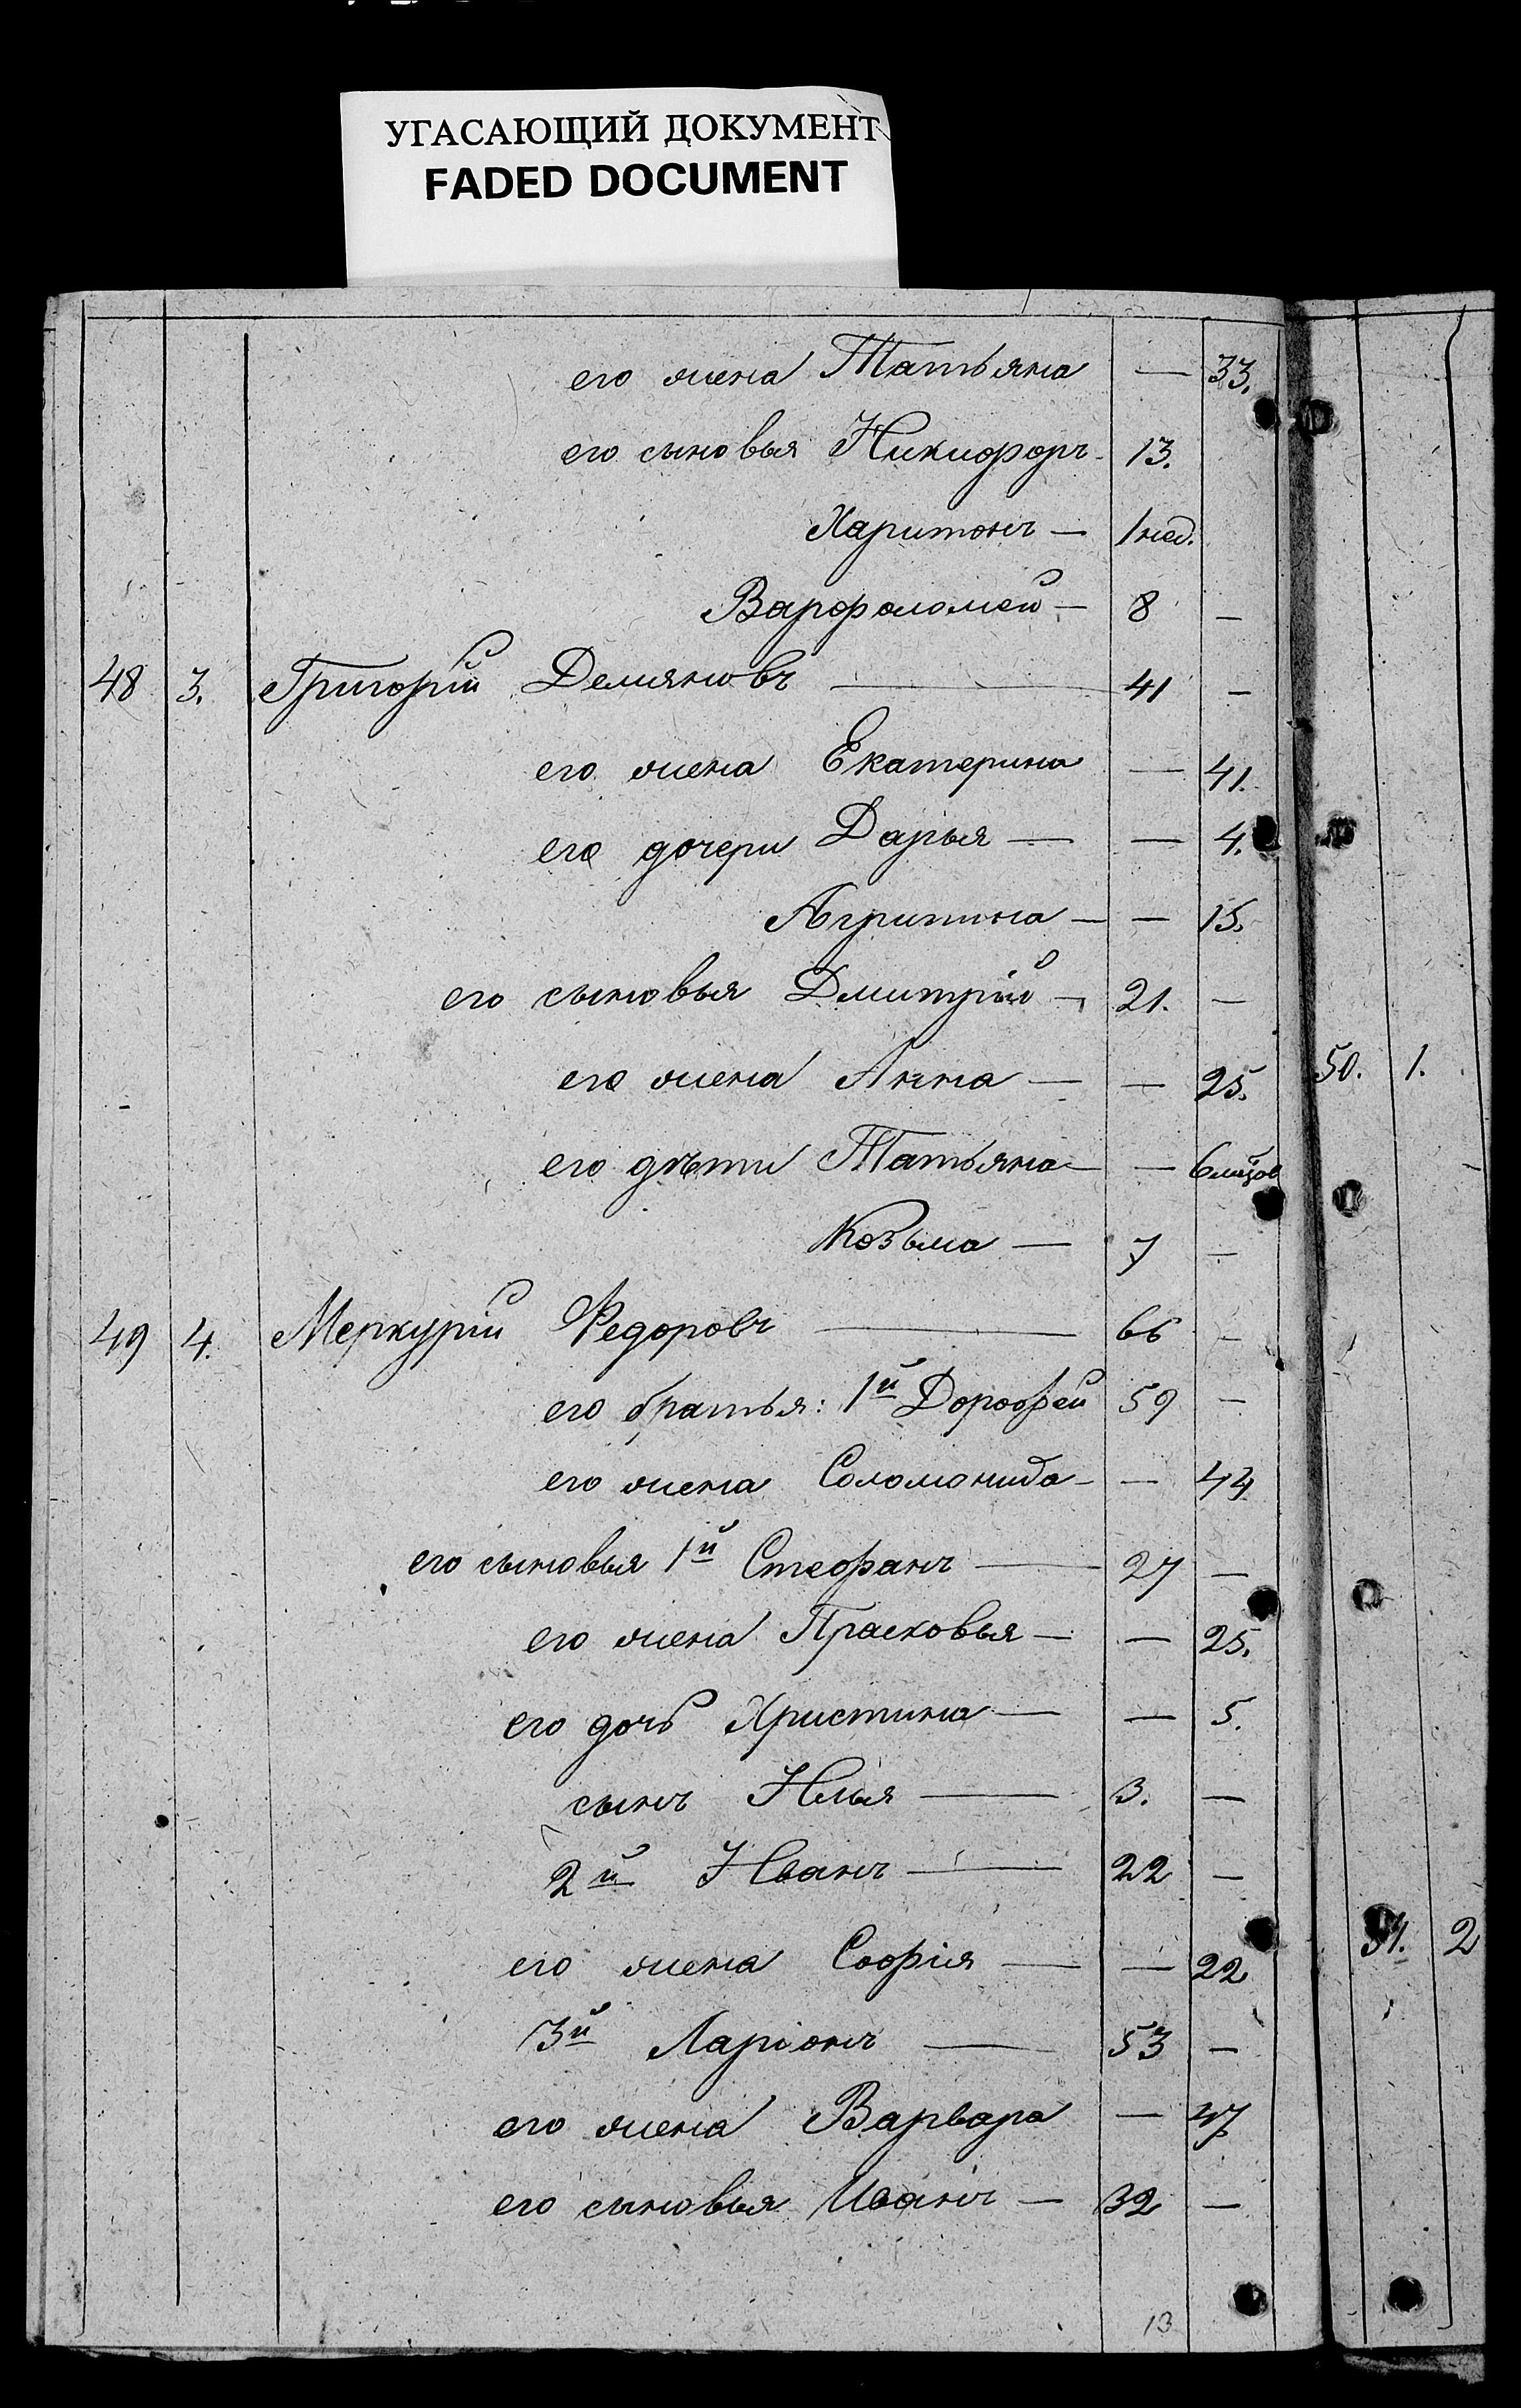 УГАСАЮЩИЙ ДОКУМЕНТ
FADED DOCUMENT
его жена Татьяна — 33.
его сыновья Никифоръ 13.
Харитонъ — 1 нед.
Варфоломей — 8 —
48 3. Григорій Демяновъ — 41 —
его жена Екатерина — 41.
его дочери Дарья — — 4.
Агрипина — — 15.
его сыновья Дмитрій — 21. —
его жена Анна — — 25.
его дѣти Татьяна — — 6 мѣс.
Козьма — 7 —
49 4. Меркурій Федоровъ — 66 —
его братья: 1й Дорофей 59 —
его жена Соломонида — — 44
его сыновья 1й Стефанъ — 27 —
его жена Прасковья — — 25.
его дочь Христина — — 5.
сынъ Илья — 3. —
2й Иванъ — 22 —
его жена Софія — — 22
3й Ларіонъ — 53 —
его жена Варвара — 47
его сыновья Иванъ — 32 —
13
50. 1.
51. 2